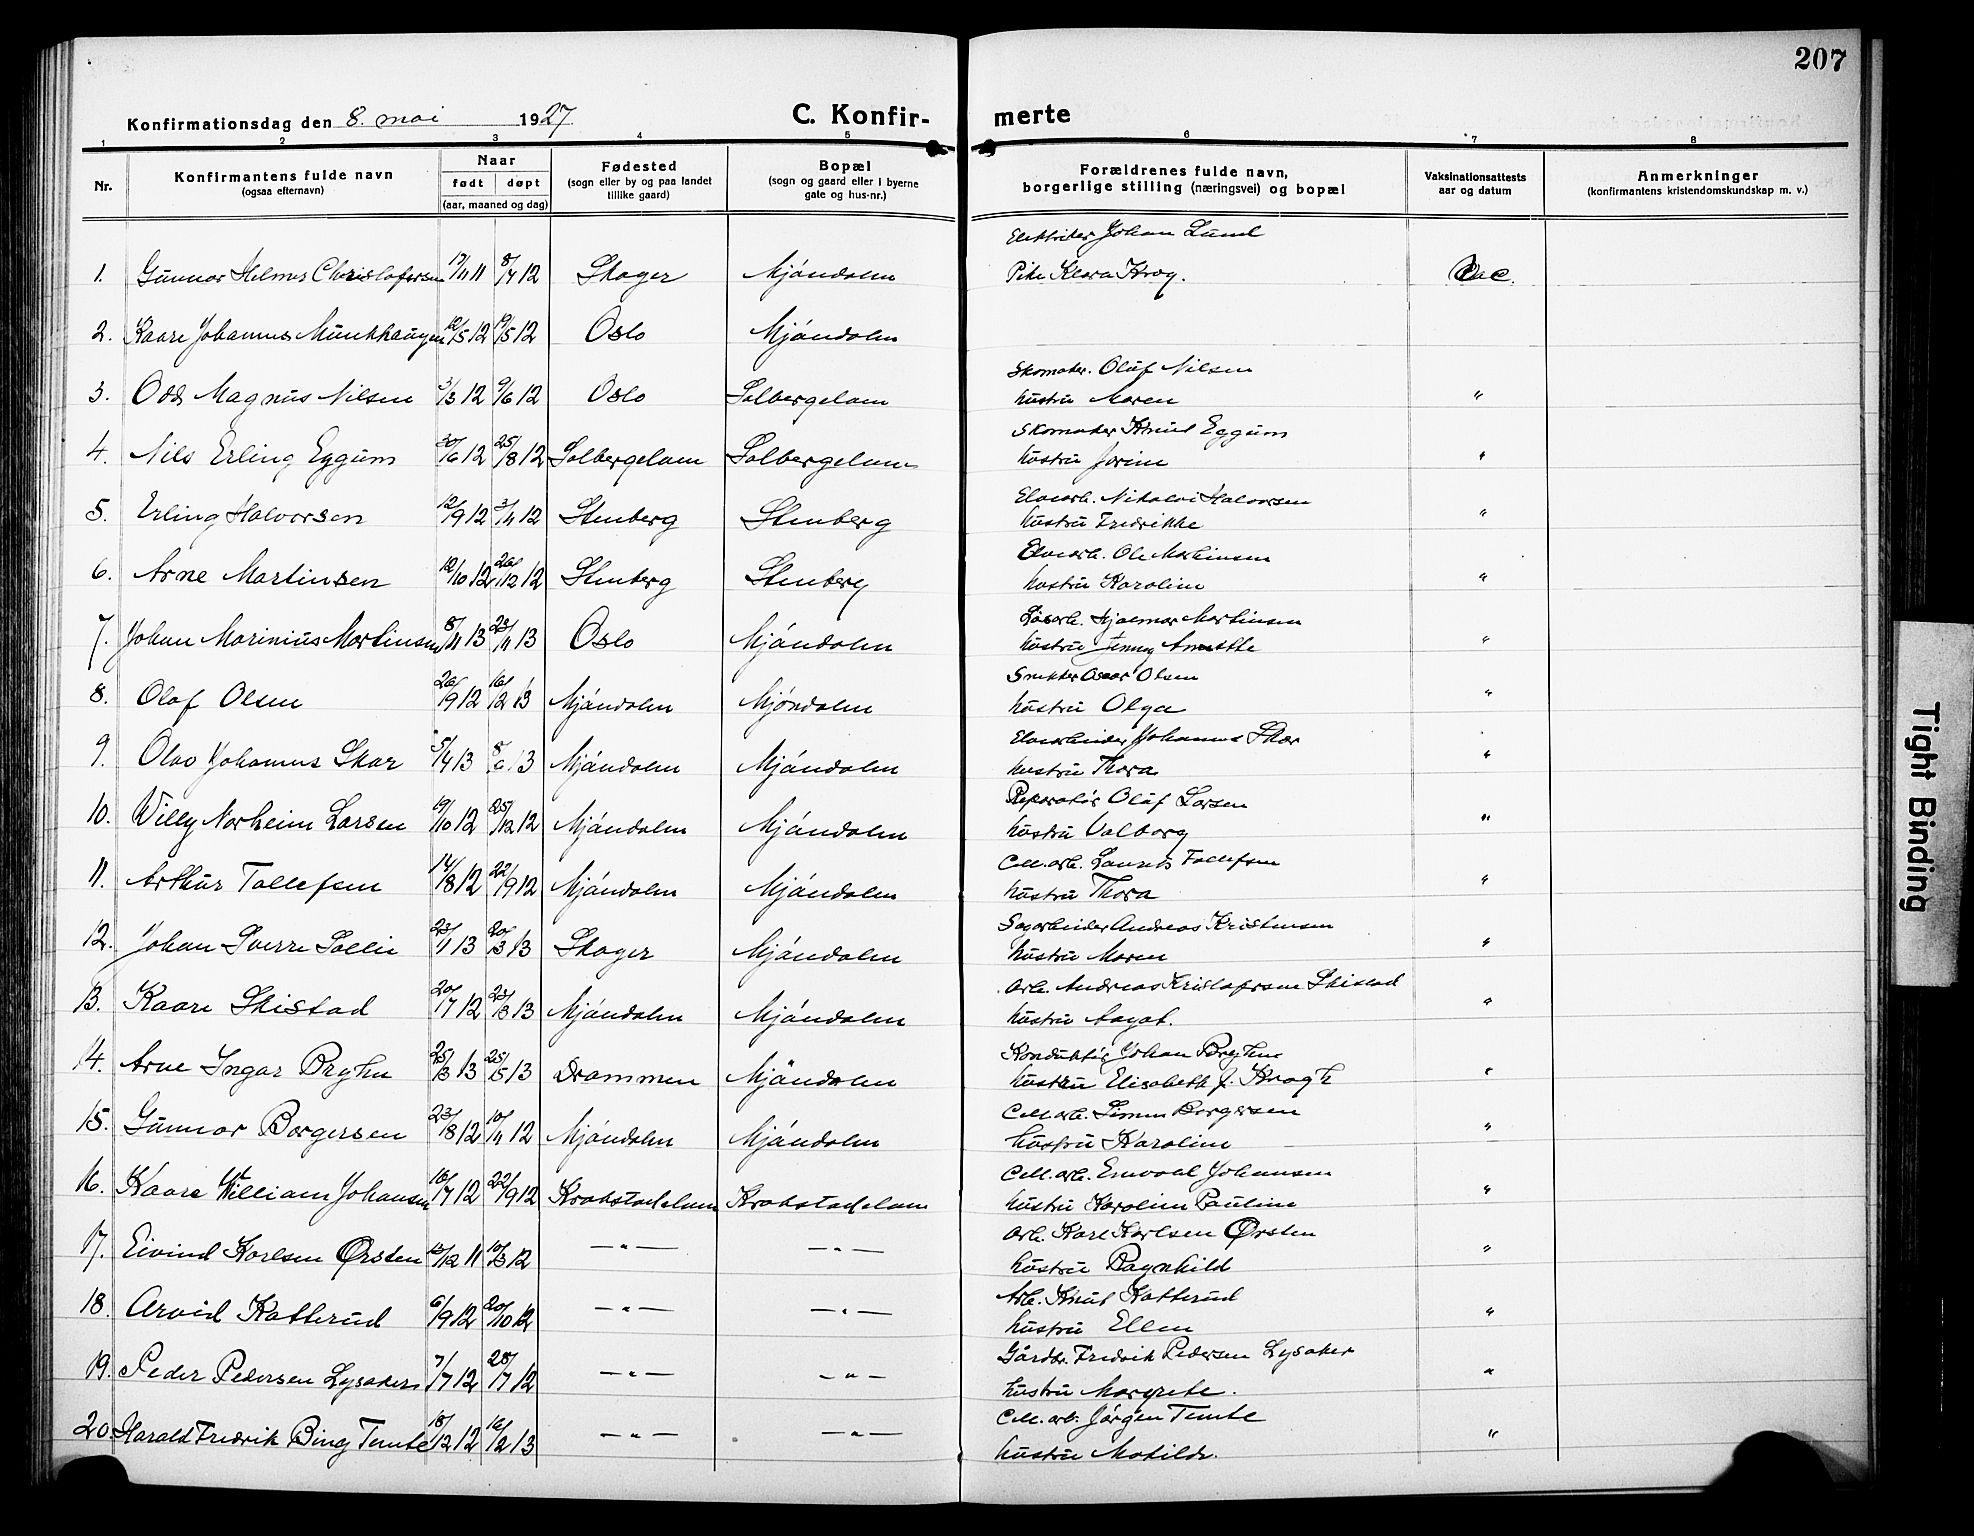 207
Konfirmationsdag den 8. mai 1927
C. Konfir-
merte
1 2 3 4 5 6 7 8
Nr.
Konfirmantens fulde navn
(ogsaa efternavn)
Naar
født døpt
(aar, maaned og dag)
Fødested
(sogn eller by og paa landet
tillike gaard)
Bopæl
(sogn og gaard eller i byerne
gate og hus-nr.)
Forældrenes fulde navn,
borgerlige stilling (næringsvei) og bopæl
Vaksinationsattests
aar og datum
Anmerkninger
(konfirmantens kristendomskundskap m. v.)
Elektriker Johan Lund
1. Gunnar Helmer Christofersen 17/11 11 8/4 12 Skoger Mjóndalen Pike Klara Krog. Vac.
2. Kaare Johannes Munkhaugen 12/5 12 19/5 12 Oslo Mjóndalen
Skomaker. Oluf Nilsen
3. Odd Magnus Nilsen 3/3 12 9/6 12 Oslo Solbergelven hustru Maren "
Skomaker Knut Eggum
4. Nils Erling Eggum 30/6 12 25/8 12 Solbergelven Solbergelven hustru Jorine "
Elvearb. Nikolai Halvorsen
5. Erling Halvorsen 12/9 12 3/11 12 Stenberg Stenberg hustru Fredrikke "
Elvearb. Ole Martinsen
6. Arne Martinsen 12/10 12 26/12 12 Stenberg Stenberg hustru Karoline "
Løsarb. Hjalmar Martinsen
7. Johan Marinius Martinsen 8/11 13 23/11 13 Oslo Mjóndalen hustru Jenny Anette "
Snekker Oscar Olsen
8. Olaf Olsen 26/9 12 16/2 13 Mjóndalen Mjóndalen hustru Olga "
Elvearbeider Johannes Skar
9. Olav Johannes Skar 5/4 13 8/6 13 Mjóndalen Mjóndalen hustru Thora "
Reparatór Oluf Larsen
10. Willy Norheim Larsen 19/10 12 25/12 12 Mjóndalen Mjóndalen hustru Valborg "
Cell. arb. Laurits Tollefsen
11. Arthur Tollefsen 14/8 12 22/9 12 Mjóndalen Mjóndalen hustru Thora "
Sagarbeider Andreas Kristensen
12. Johan Sverre Sollie 23/1 13 20/3 13 Skoger Mjóndalen hustru Maren "
Arb. Andreas Kristofersen Skistad
13. Kaare Skistad 20/7 12 23/3 13 Mjóndalen Mjóndalen hustru Aagot. "
Konduktór Johan Bryhn
14. Arne Ingar Bryhn 25/3 13 25/5 13 Drammen Mjóndalen hustru Elisabeth f. Krogh "
Cell. arb. Simen Borgersen
15. Gunnar Borgersen 23/8 12 10/11 12 Mjóndalen Mjóndalen hustru Karoline "
Cell. arb. Emvald Johansen
16. Kaare William Johansen 16/7 12 22/9 12 Krokstadelven Krokstadelven hustru Karoline Pauline "
Arb. Karl Karlsen Ørsten
17. Eivind Karlsen Ørsten 13/12 11 10/3 12 — " — — " — hustru Ragnhild "
Arb. Knut Katterud
18. Arvid Katterud 6/9 12 20/10 12 — " — — " — hustru Ellen "
Gårdbr. Fredrik Pedersen Lysaker
19. Peder Pedersen Lysaker 7/7 12 28/7 12 — " — — " — hustru Margrete. "
Cell. arb. Jörgen Temte
20. Harald Fredrik Bing Temte 18/12 12 16/2 13 — " — — " — hustru Matilde. "
Tight Binding